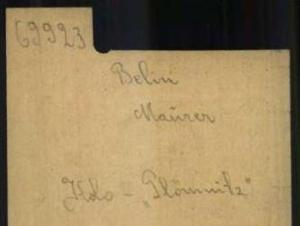 69923
Belin
Maurer
Kdo - „Plömnitz"